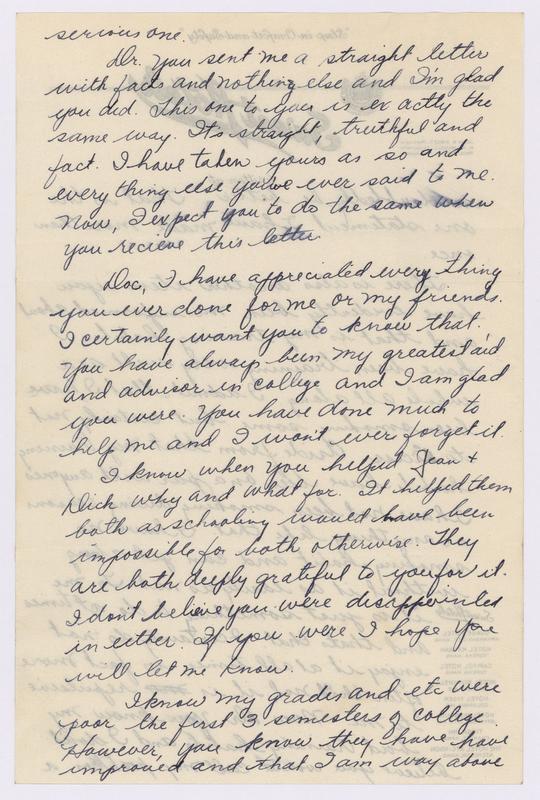 serious one.
Dr. you sent me a straight letter
with facts and nothing else and I'm glad
you did. This one to you is exactly the
same way. It's straight, truthful and
fact. I have taken yours as so and
every thing else you've ever said to me.
Now, I expect you to do the same when
you recieve this letter.
Doc, I have appreciated every thing
you ever done for me or my friends.
I certainly want you to know that.
You have always been my greatest aid
and advisor in college and I am glad
you were. You have done much to
help me and I won't ever forget it.
I know when you helped Jean +
Dick why and what for. It helped them
both as schooling would have been
impossible for both otherwise. They
are both deeply grateful to you for it.
I don't believe you were disappointed
in either. If you were I hope you
will let me know.
I know my grades and etc were
poor the first 3 semesters of college.
However, you know they have have
improved and that I am way above